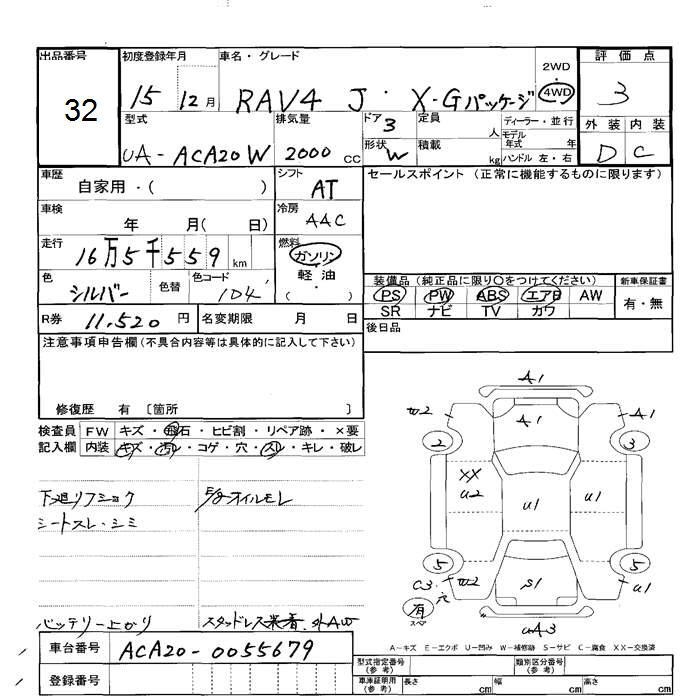 出品番号 初度登録年月 車名・グレード 2WD 評価点
32 15 12月 RAV4 J・X-Gパッケージ 4WD 3
型式 排気量 ドア 3 定員 人 ディーラー・並行 外装 内装
UA-ACA20W 2000cc 形状 W 積載 kg モデル年式 年 D C
ハンドル 左・右
車歴 自家用・( ) シフト AT セールスポイント (正常に機能するものに限ります)
車検 年 月( 日) 冷房 AAC
走行 16万5千559km 燃料 ガソリン
軽油
( )
色 シルバー 色替 色コード 1D4
装備品 (純正品に限り○をつけてください) 新車保証書
PS PW ABS エアB AW 有・無
SR ナビ TV カワ
R券 11,520円 名変期限 月 日 後日品
注意事項申告欄(不具合内容等は具体的に記入して下さい)
修復歴 有 〔箇所 〕
検査員 FW キズ・飛石・ヒビ割・リペア跡・×要
記入欄 内装 キズ・汚レ・コゲ・穴・スレ・キレ・破レ
A1
W2 A1 A1
2 3
XX
U2 U1 U1
5 5
C3.穴 W2 S1 U1
有
スペア
UA3
下廻リフショク E/gオイルモレ
シートスレ・シミ
バッテリー上がり スタッドレス装着・外AW
A-キズ E-エクボ U-凹み W-補修跡 S-サビ C-腐食 XX-交換済
車台番号 ACA20-0055679
登録番号
型式指定番号(参考) 類別区分番号(参考)
車庫証明用(参考) 長さ cm 幅 cm 高さ cm